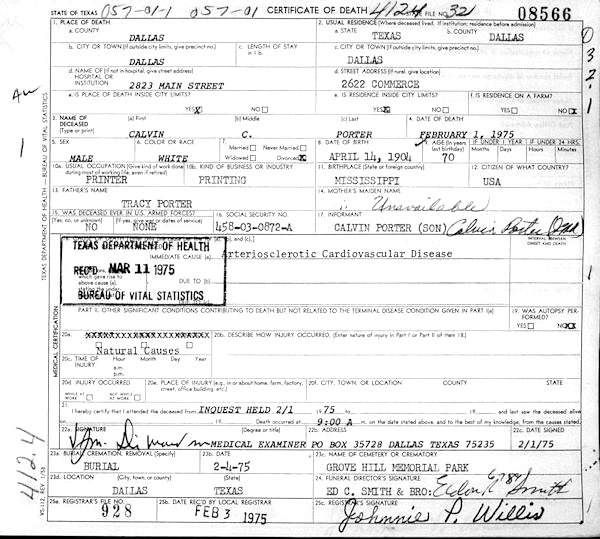 STATE OF TEXAS 057-01-1 057-01 CERTIFICATE OF DEATH 4124 STATE FILE NO. 321 08566
1. PLACE OF DEATH
a. COUNTY
DALLAS
2. USUAL RESIDENCE (Where deceased lived. If institution: residence before admission)
a. STATE
TEXAS
b. COUNTY
DALLAS
b. CITY OR TOWN (If outside city limits, give precinct no.)
DALLAS
c. LENGTH OF STAY
in 1 b.
c. CITY OR TOWN (If outside city limits, give precinct no.)
DALLAS
d. NAME OF (If not in hospital, give street address)
HOSPITAL OR
INSTITUTION
2823 MAIN STREET
d. STREET ADDRESS (If rural, give location)
2622 COMMERCE
e. IS PLACE OF DEATH INSIDE CITY LIMITS?
YES X NO
e. IS RESIDENCE INSIDE CITY LIMITS?
YES X NO
f. IS RESIDENCE ON A FARM?
YES NO X
3. NAME OF
DECEASED
(Type or print)
(a) First
CALVIN
(b) Middle
C.
(c) Last
PORTER
4. DATE OF DEATH
FEBRUARY 1, 1975
5. SEX
MALE
6. COLOR OR RACE
WHITE
7.
Married Never Married
Widowed Divorced X
8. DATE OF BIRTH
APRIL 14, 1904
9. AGE (In years
last birthday)
70
IF UNDER 1 YEAR
Months Days
IF UNDER 24 HRS.
Hours Minutes
10a. USUAL OCCUPATION (Give kind of work done
during most of working life, even if retired)
PRINTER
10b. KIND OF BUSINESS OR INDUSTRY
PRINTING
11. BIRTHPLACE (State or foreign country)
MISSISSIPPI
12. CITIZEN OF WHAT COUNTRY?
USA
13. FATHER'S NAME
TRACY PORTER
14. MOTHER'S MAIDEN NAME
Unavailable
15. WAS DECEASED EVER IN U.S. ARMED FORCES?
(Yes, no, or unknown) (If yes, give war or dates of service)
NO NONE
16. SOCIAL SECURITY NO.
458-03-0872-A
17. INFORMANT
CALVIN PORTER (SON) Calvin Porter
INTERVAL BETWEEN
ONSET AND DEATH
TEXAS DEPARTMENT OF HEALTH
REC'D MAR 11 1975
BUREAU OF VITAL STATISTICS
IMMEDIATE CAUSE (a)
Arteriosclerotic Cardiovascular Disease
which gave rise to
above cause (a),
stating the under-
DUE TO (b)
PART II. OTHER SIGNIFICANT CONDITIONS CONTRIBUTING TO DEATH BUT NOT RELATED TO THE TERMINAL DISEASE CONDITION GIVEN IN PART I(a)
19. WAS AUTOPSY PER-
FORMED?
YES NO XX
20a.
Natural Causes
20b. DESCRIBE HOW INJURY OCCURRED. (Enter nature of injury in Part I or Part II of item 18.)
20c. TIME OF
INJURY
Hour Month Day Year
a.m.
p.m.
20d. INJURY OCCURRED
WHILE AT
WORK
NOT WHILE
AT WORK
20e. PLACE OF INJURY (e.g., in or about home, farm, factory,
street, office building, etc.)
20f. CITY, TOWN, OR LOCATION
COUNTY
STATE
21.
I hereby certify that I attended the deceased from INQUEST HELD 2/1 1975 to 19 and last saw the deceased alive
on 19 Death occurred at 9:00 A m. on the date stated above, and to the best of my knowledge, from the causes stated.
22a. SIGNATURE
(Degree or title)
MEDICAL EXAMINER
22b. ADDRESS
PO BOX 35728 DALLAS TEXAS 75235
22c. DATE SIGNED
2/1/75
23a. BURIAL, CREMATION, REMOVAL (Specify)
BURIAL
23b. DATE
2-4-75
23c. NAME OF CEMETERY OR CREMATORY
GROVE HILL MEMORIAL PARK
23d. LOCATION (City, town, or county)
DALLAS
(State)
TEXAS
24. FUNERAL DIRECTOR'S SIGNATURE
ED C. SMITH & BRO: 6784 Smith
25a. REGISTRAR'S FILE NO.
928
25b. DATE REC'D BY LOCAL REGISTRAR
FEB 3 1975
25c. REGISTRAR'S SIGNATURE
Johnnie P. Willis
TEXAS DEPARTMENT OF HEALTH — BUREAU OF VITAL STATISTICS
MEDICAL CERTIFICATION
4124
1
0
3
2
1